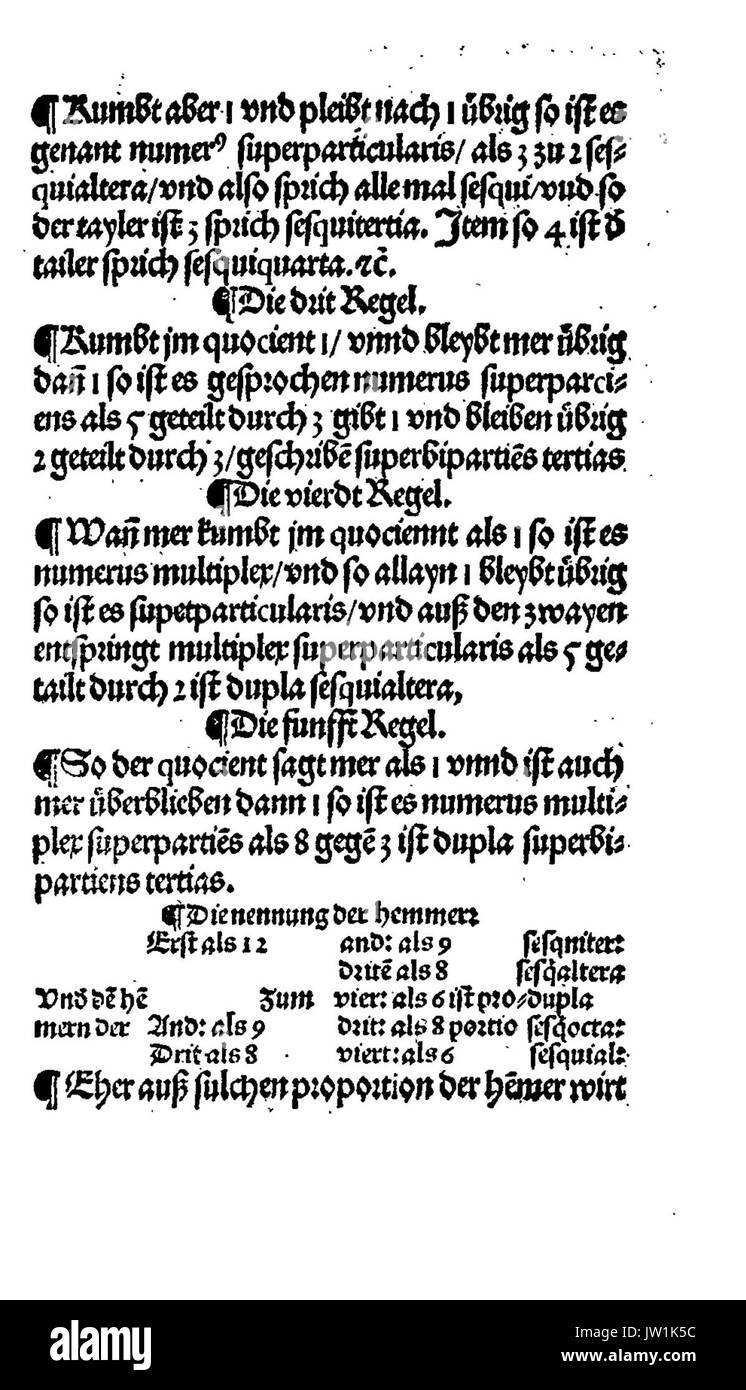 ¶ Kumbt aber 1 vnd pleibt nach 1 übrig so ist es
genant numerꝰ superparticularis/ als 3 zu 2 ses⸗
quialtera/vnd also sprich alle mal sesqui/vnd so
der tayler ist 3 sprich sesquitertia. Item so 4 ist d̄
tailer sprich sesquiquarta.⁊c̄.
¶Die drit Regel.
¶Kumbt jm quocient 1/ vnnd bleybt mer übrig
dañ 1 so ist es gesprochen numerus superparci⸗
ens als 5 geteilt durch 3 gibt 1 vnd bleiben übrig
2 geteilt durch 3/geschribē superbipartiēs tertias
¶Die vierdt Regel.
¶Wañ mer kumbt jm quociennt als 1 so ist es
numerus multiplex/vnd so allayn 1 bleybt übrig
so ist es supetparticularis/vnd auß den zwayen
entspringt multiplex superparticularis als 5 ge⸗
tailt durch 2 ist dupla sesquialtera,
¶Die funfft Regel.
¶So der quocient sagt mer als 1 vnnd ist auch
mer überblieben dann 1 so ist es numerus multi⸗
plex superpartiēs als 8 gegē 3 ist dupla superbi⸗
partiens tertias.
¶Die nennung der hemmer:
Erst als 12 and: als 9 sesqniter:
dritē als 8 sesq̄altera
Vnd dē hē zum vier: als 6 ist pro⸗dupla
mern der And: als 9 drit: als 8 portio sesq̄octa:
Drit als 8 viert: als 6 sesquial:
¶ Eher auß sulchen proportion der hēmer wirt
alamy
alamy
Image ID: JW1K5C
www.alamy.com